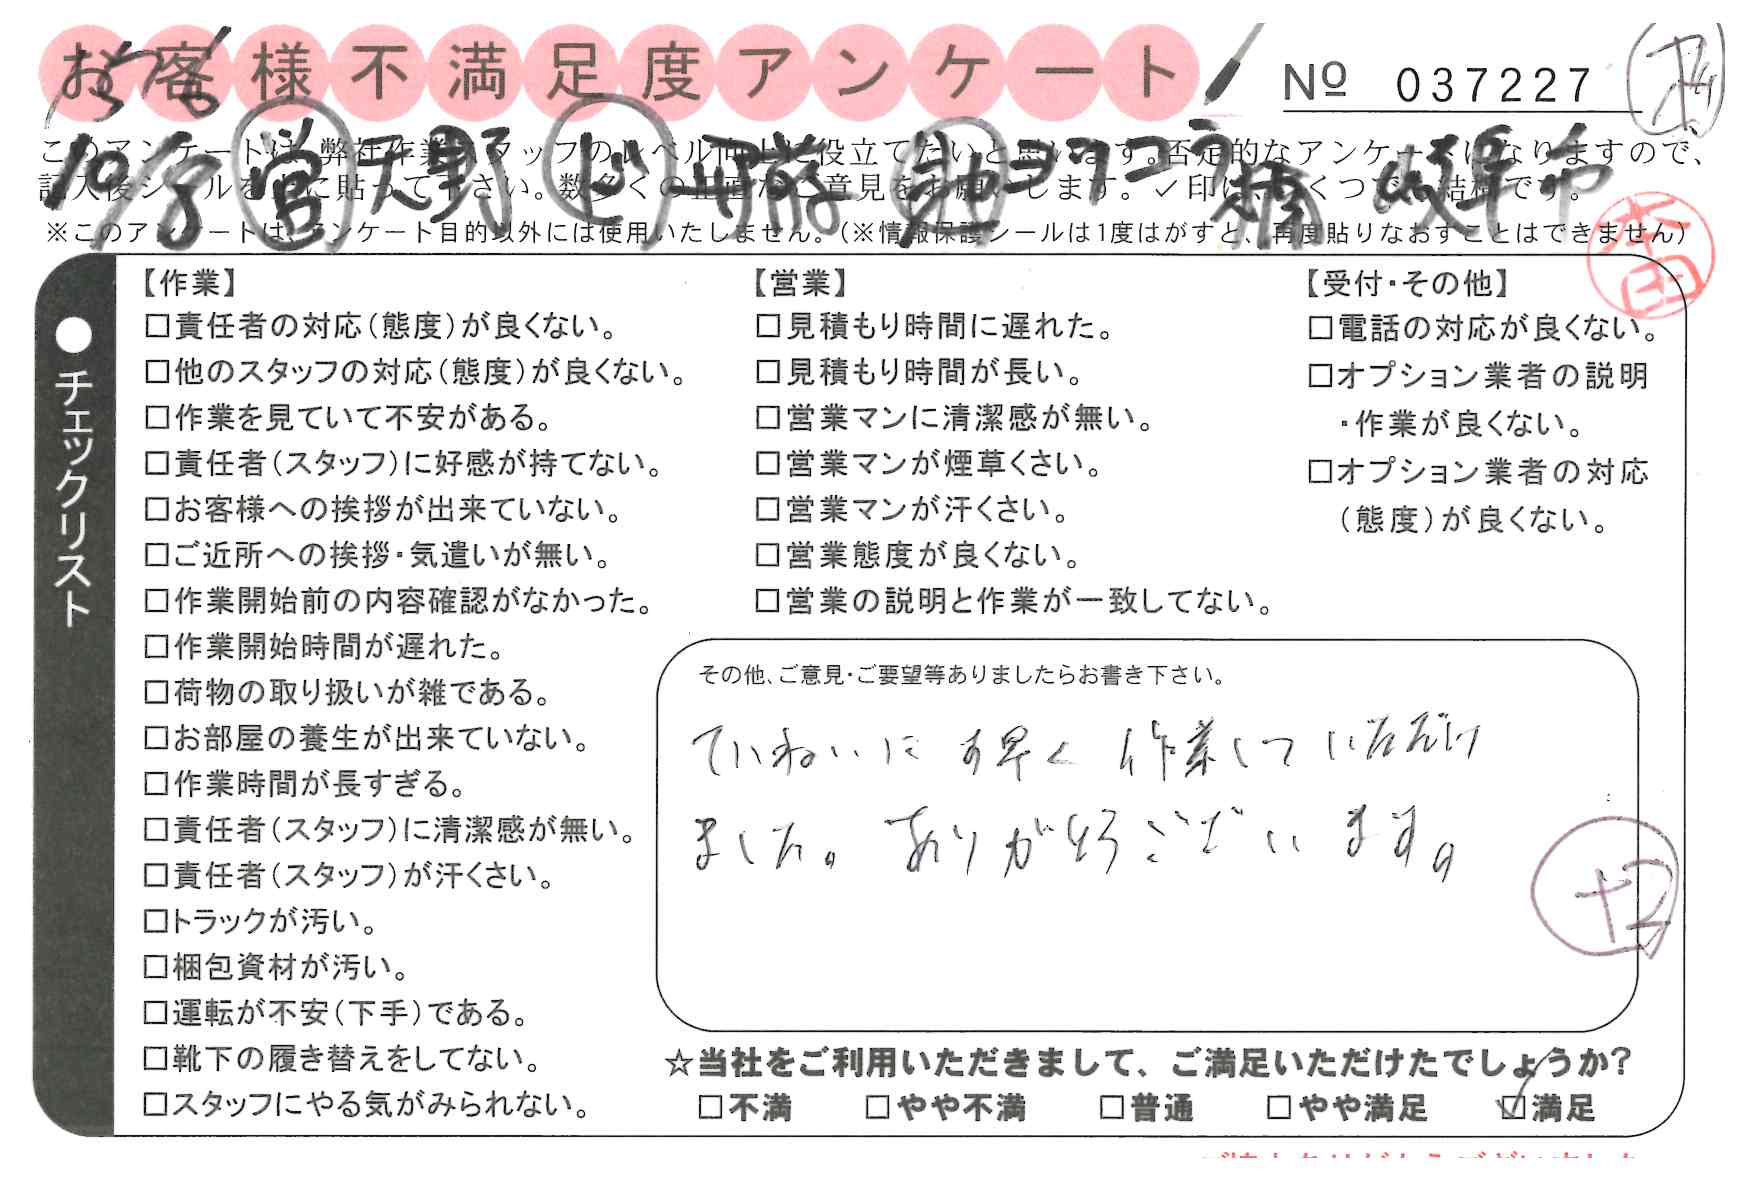 お客様不満足度アンケート
Nº 037227
このアンケートは、弊社作業スタッフのレベル向上に役立てたいと思います。否定的なアンケートになりますので、
記入後シールを上に貼って下さい。数多くの正直なご意見をお願いします。✓印は、いくつでも結構です。
※このアンケートは、アンケート目的以外には使用いたしません。(※情報保護シールは1度はがすと、再度貼りなおすことはできません)
営 天野
助 ヨココウ
本田
●チェックリスト
【作業】
□責任者の対応(態度)が良くない。
□他のスタッフの対応(態度)が良くない。
□作業を見ていて不安がある。
□責任者(スタッフ)に好感が持てない。
□お客様への挨拶が出来ていない。
□ご近所への挨拶・気遣いが無い。
□作業開始前の内容確認がなかった。
□作業開始時間が遅れた。
□荷物の取り扱いが雑である。
□お部屋の養生が出来ていない。
□作業時間が長すぎる。
□責任者(スタッフ)に清潔感が無い。
□責任者(スタッフ)が汗くさい。
□トラックが汚い。
□梱包資材が汚い。
□運転が不安(下手)である。
□靴下の履き替えをしてない。
□スタッフにやる気がみられない。
【営業】
□見積もり時間に遅れた。
□見積もり時間が長い。
□営業マンに清潔感が無い。
□営業マンが煙草くさい。
□営業マンが汗くさい。
□営業態度が良くない。
□営業の説明と作業が一致してない。
【受付・その他】
□電話の対応が良くない。
□オプション業者の説明
・作業が良くない。
□オプション業者の対応
(態度)が良くない。
その他、ご意見・ご要望等ありましたらお書き下さい。
ていねいにす早く作業していただけ
ました。ありがとうございます。
☆当社をご利用いただきまして、ご満足いただけたでしょうか?
□不満 □やや不満 □普通 □やや満足 ☑満足